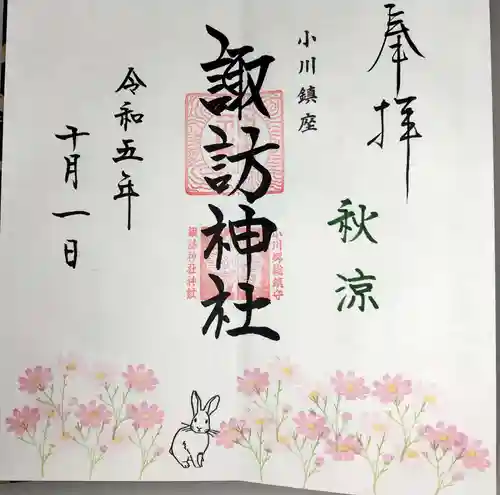 奉拝
秋涼
小川鎮座
諏訪神社
小川郷総鎮守
諏訪神社神璽
令和五年
十月一日